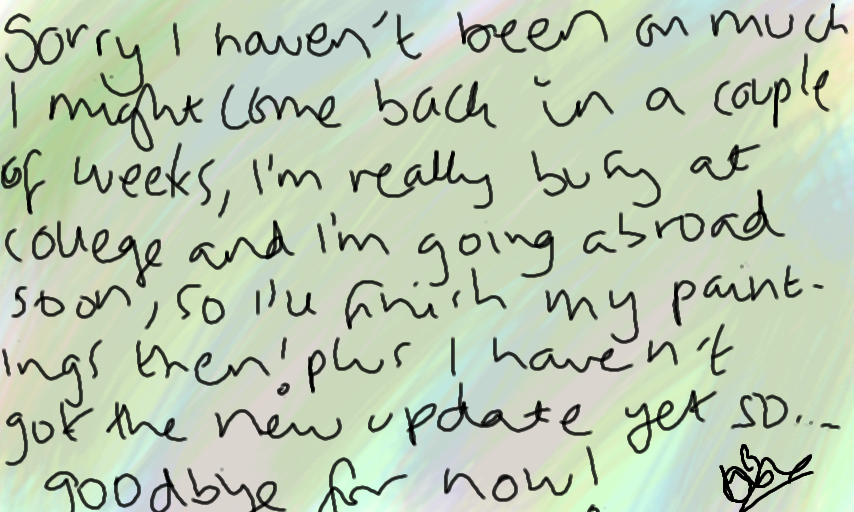 Sorry I haven't been on much
I might come back in a couple
of weeks, I'm really busy at
college and I'm going abroad
soon, so I'll finish my paint-
ings then! plus I haven't
got the new update yet so...
goodbye for now!